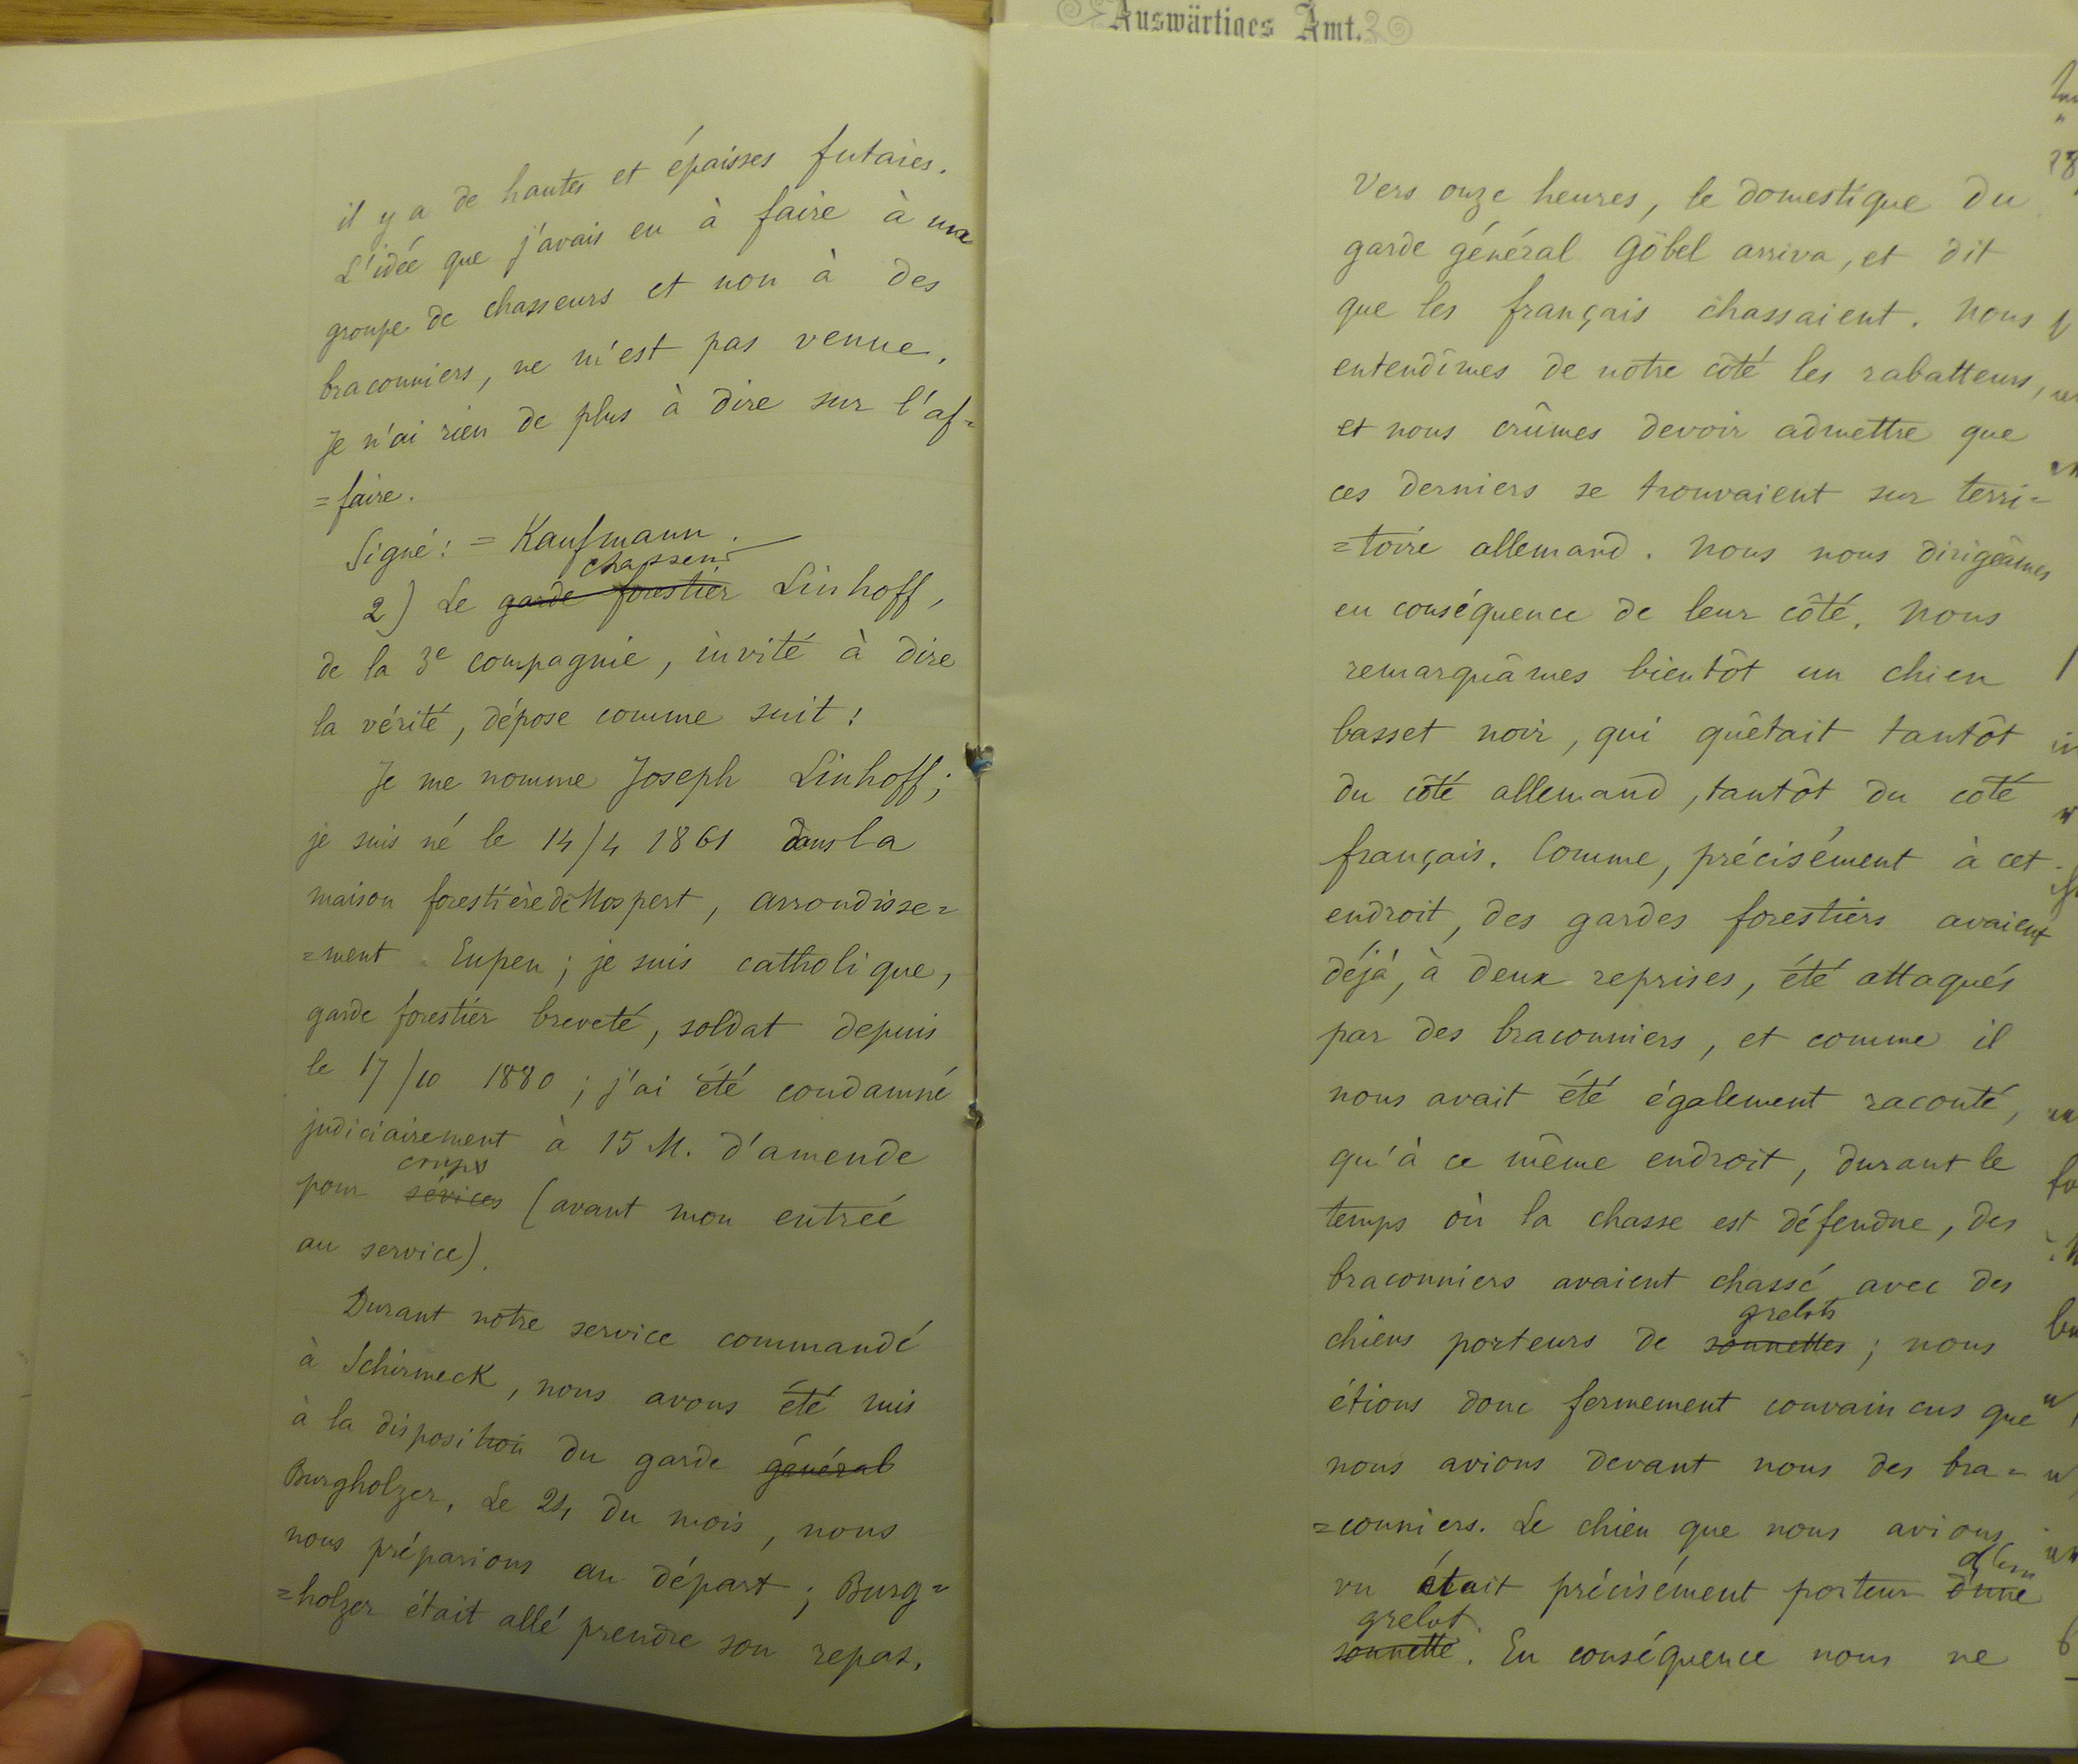 il y a de hautes et épaisses futaies.
L'idée que j'avais eu à faire à un
groupe de chasseurs et non à des
braconniers, ne m'est pas venue.
Je n'ai rien de plus à dire sur l'af=
=faire.
Signé: = Kaufmann.
chasseur
2) Le garde forestier Linhoff,
de la 3e compagnie, invité à dire
la vérité, dépose comme suit:
Je me nomme Joseph Linhoff;
je suis né le 14/4 1861 dans la
maison forestière de Mospert, arrondisse=
=ment Eupen; je suis catholique,
garde forestier breveté, soldat depuis
le 17/10 1880; j'ai été condamné
judiciairement à 15 M. d'amende
coups
pour sévices (avant mon entrée
au service).
Durant notre service commandé
à Schirmeck, nous avons été mis
à la disposition du garde général
Burgholzer. Le 24 du mois, nous
nous préparions au départ; Burg=
=holzer était allé prendre son repas.
Auswärtiges Amt.
Vers onze heures, le domestique du
garde général Göbel arriva, et dit
que les français chassaient. Nous
entendîmes de notre côté les rabatteurs,
et nous crûmes devoir admettre que
ces derniers se trouvaient sur terri=
=toire allemand. Nous nous dirigeâmes
en conséquence de leur côté. Nous
remarquâmes bientôt un chien
basset noir, qui quêtait tantôt
du côté allemand, tantôt du côté
français. Comme, précisément à cet
endroit, des gardes forestiers avaient
déjà, à deux reprises, été attaqués
par des braconniers, et comme il
nous avait été également raconté,
qu'à ce même endroit, durant le
temps où la chasse est défendue, des
braconniers avaient chassé avec des
grelots
chiens porteurs de sonnettes; nous
étions donc fermement convaincus que
nous avions devant nous des bra=
=conniers. Le chien que nous avions
vu était précisément porteur d'une
grelot
sonnette. En conséquence nous ne